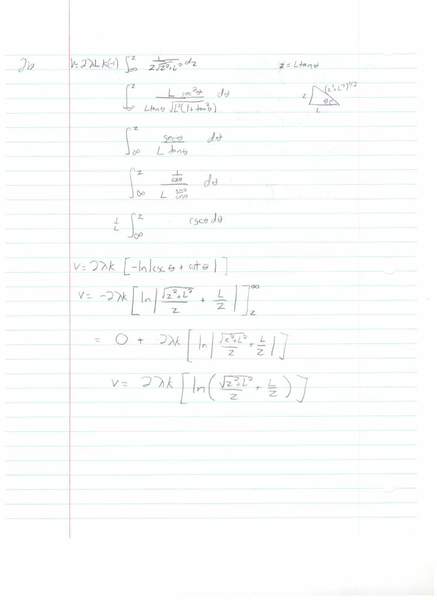 2b V = 2λLk(-1) ∫_∞^z 1/(z√(z²+L²)) dz z = L tanθ
∫_∞^z L sec²θ/(L tanθ √(L²(1+tan²θ))) dθ z (z²+L²)^(1/2) θ L
∫_∞^z secθ/(L tanθ) dθ
∫_∞^z (1/cosθ)/(L sinθ/cosθ) dθ
1/L ∫_∞^z cscθ dθ
V = 2λk [-ln|cscθ + cotθ|]
V = -2λk [ln|√(z²+L²)/z + L/z|]_z^∞
= 0 + 2λk [ln|√(z²+L²)/z + L/z|]
V = 2λk [ln(√(z²+L²)/z + L/z)]